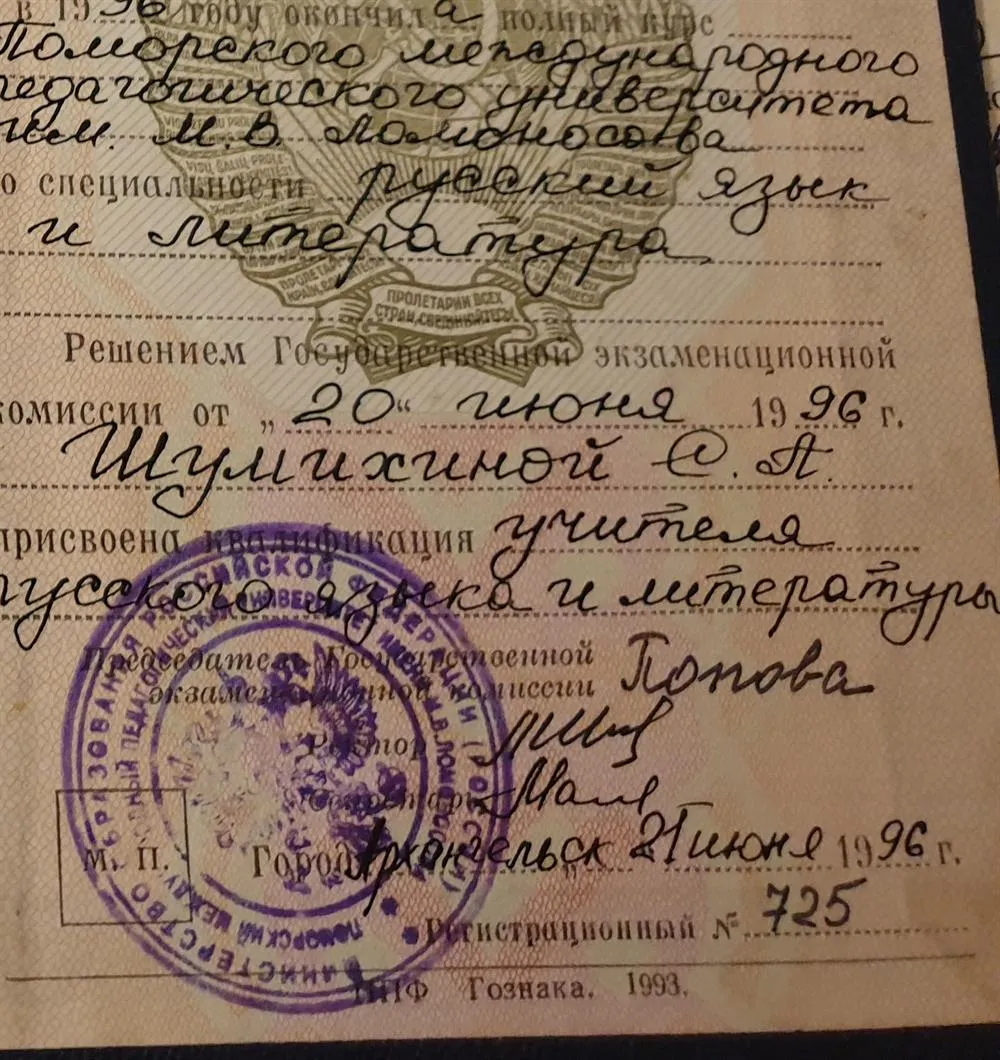 в 1996 году окончила полный курс
Поморского международного
педагогического университета
им. М.В. Ломоносова
о специальности русский язык
и литература
ПРОЛЕТАРИИ ВСЕХ
СТРАН, СОЕДИНЯЙТЕСЬ
Решением Государственной экзаменационной
комиссии от „20“ июня 1996 г.
Шумихиной С. А.
присвоена квалификация учителя
русского языка и литературы
Председатель Государственной
экзаменационной комиссии Попова
Ректор
Секретарь
М. П. Город Архангельск 21 июня 1996 г.
Регистрационный № 725
Гознака. 1993.
МИНИСТЕРСТВО ОБРАЗОВАНИЯ РОССИЙСКОЙ ФЕДЕРАЦИИ (РОССИЯ)
ПОМОРСКИЙ МЕЖДУНАРОДНЫЙ ПЕДАГОГИЧЕСКИЙ УНИВЕРСИТЕТ ИМЕНИ М.В.ЛОМОНОСОВА